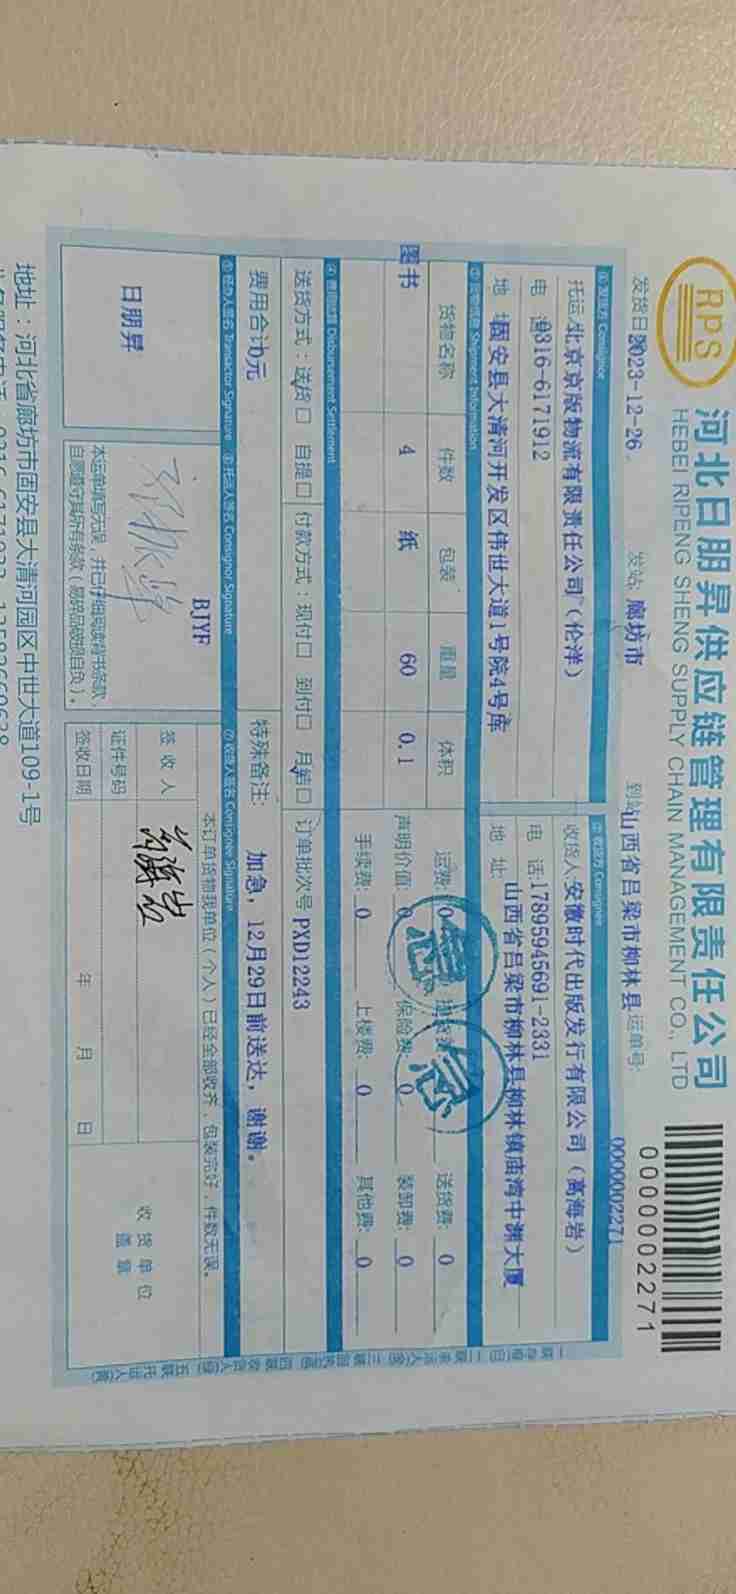 RPS
河北日朋昇供应链管理有限责任公司
HEBEI RIPENG SHENG SUPPLY CHAIN MANAGEMENT CO., LTD
0000002271
发货日 2023-12-26
发站: 廊坊市
到站 山西省吕梁市柳林县
运单号:
0000002271
① 发货方 Consignee
② 收货方 Consignee
托运 北京京版物流有限责任公司(伦洋)
收货人 安徽时代出版发行有限公司(高海岩)
电 话 0316-6171912
电 话 17895945691-2331
地 址 固安县大清河开发区伟世大道1号院4号库
地 址: 山西省吕梁市柳林县柳林镇庙湾中渊大厦
③ 货物信息 Shipment Information
货物名称 件数 包装 重量 体积
运费: 0 送货费: 0
图书 4 纸 60 0.1
声明价值: 0 保险费: 0 装卸费: 0
手续费: 0 上楼费: 0 其他费: 0
急 急
④ 费用结算 Disbursement Settlement
送货方式: 送货□ 自提□ 付款方式: 现付□ 到付□ 月结□ 订单批次号 PXD12243
费用合计 0元
特殊备注: 加急,12月29日前送达,谢谢。
⑤ 经办人签名 Transactor Signature
⑥ 托运人签名 Consignor Signature
⑦ 收货人签名 Consignee Signature
日朋昇
BJYF
本运单填写无误,并已仔细阅读背书条款,
自愿遵守其所有条款(易碎品破损自负)。
本订单货物我单位(个人)已经全部收齐,包装完好,件数无误。
签 收 人
证件号码
签收日期 年 月 日
收 货 单 位
盖 章
地址:河北省廊坊市固安县大清河园区中世大道109-1号